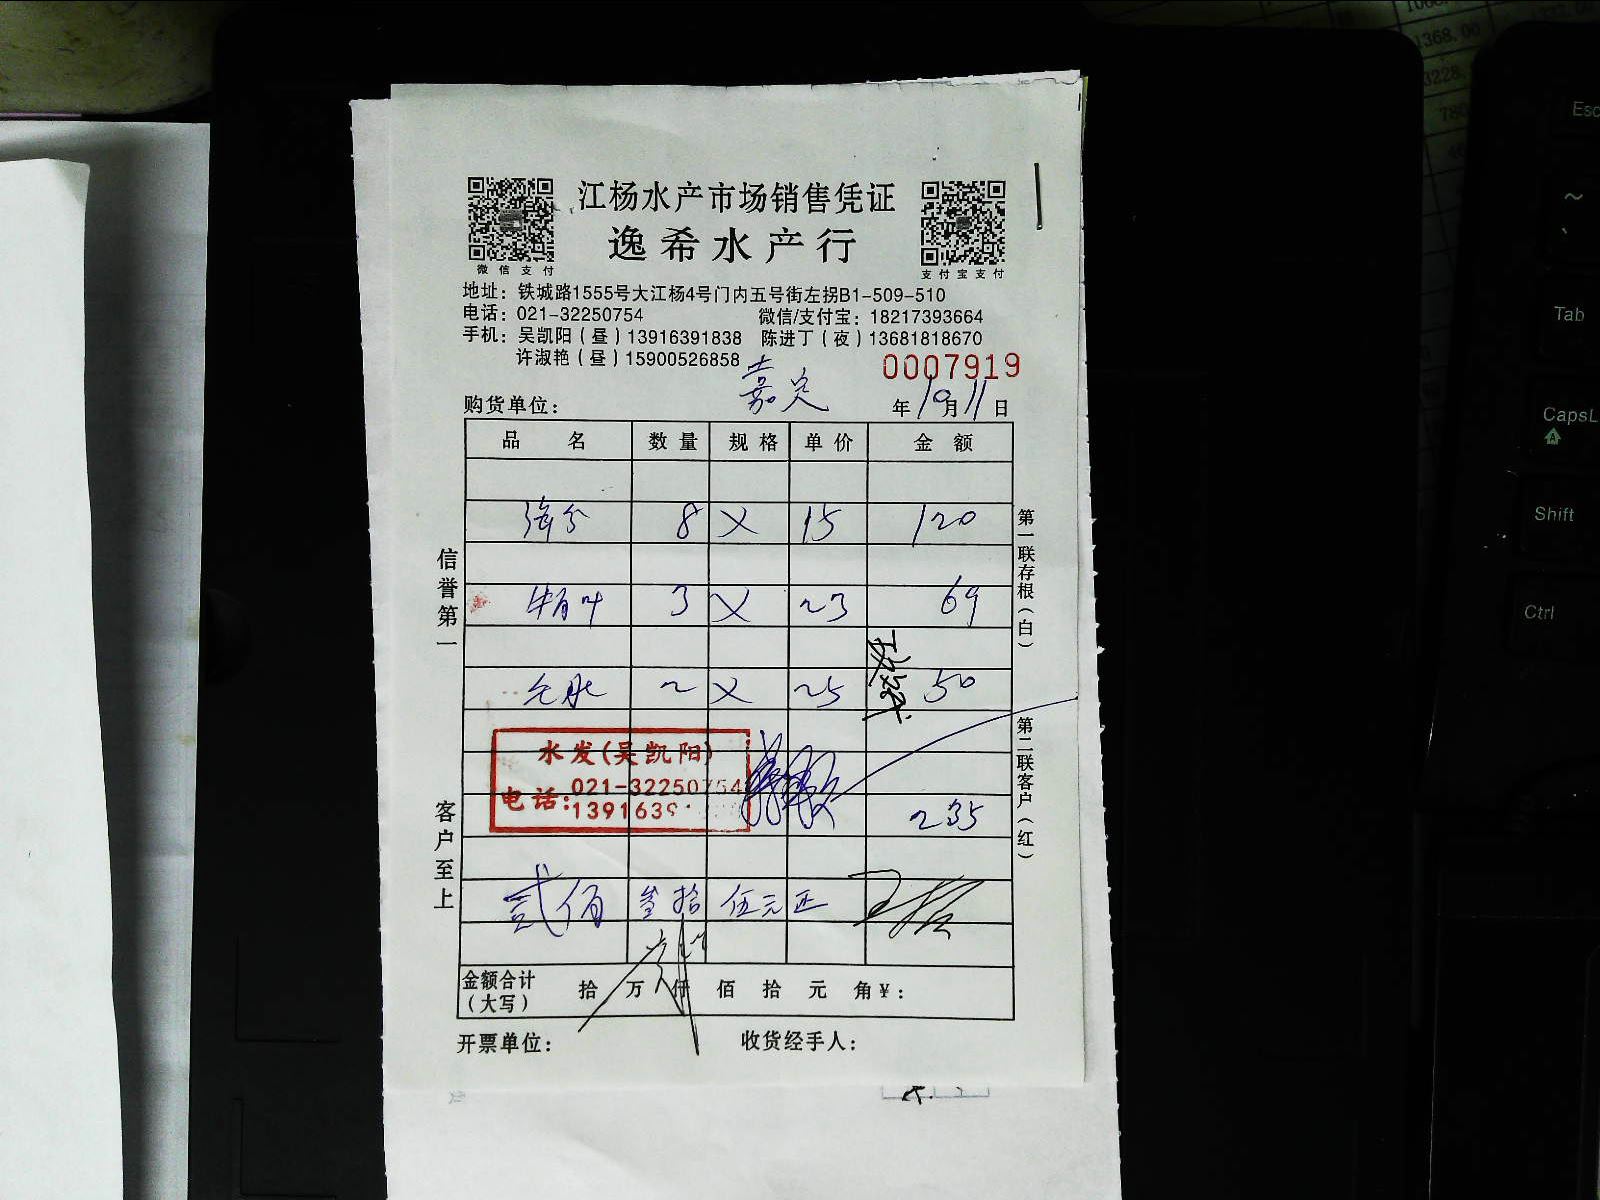 江杨水产市场销售凭证
逸希水产行
微信支付
支付宝支付
地址：铁城路1555号大江杨4号门内五号街左拐B1-509-510
电话：021-32250754 微信/支付宝：18217393664
手机：吴凯阳（昼）13916391838 陈进丁（夜）13681818670
许淑艳（昼）15900526858
0007919
购货单位： 嘉定 年10月11日
品名 数量 规格 单价 金额
8 X 15 120
牛肖叶 3 X 23 69
2 X 25 50
水发(吴凯阳)
021-32250754
电话:1391639
235
贰佰 叁拾 伍元正
金额合计（大写） 拾 万 仟 佰 拾 元 角 ¥：
开票单位： 收货经手人：
信誉第一
客户至上
第一联存根（白）
第二联客户（红）
1368.00
3228.
780
Esc
~
Tab
CapsL
A
Shift
Ctrl